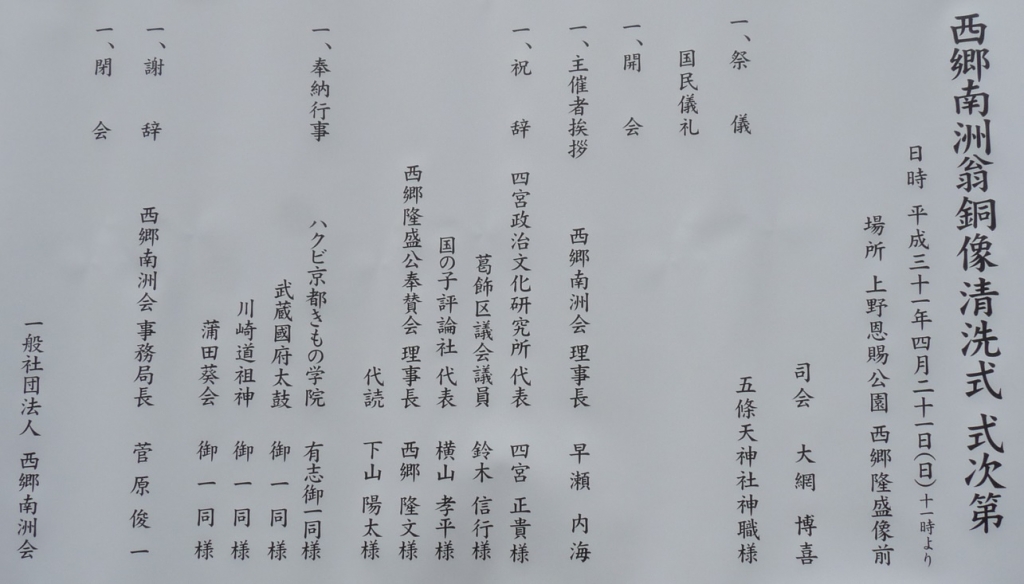 西郷南洲翁銅像清洗式 式次第
日時 平成三十一年四月二十一日(日)十一時より
場所 上野恩賜公園 西郷隆盛像前
司会 大網 博喜
一、祭 儀 五條天神社神職様
国民儀礼
一、開 会
一、主催者挨拶 西郷南洲会 理事長 早瀬 内海
一、祝 辞 四宮政治文化研究所 代表 四宮 正貴様
葛飾区議会議員 鈴木 信行様
国の子評論社 代表 横山 孝平様
西郷隆盛公奉賛会 理事長 西郷 隆文様
代読 下山 陽太様
一、奉納行事 ハクビ京都きもの学院 有志御一同様
武蔵國府太鼓 御一同様
川崎道祖神 御一同様
蒲田葵会 御一同様
一、謝 辞 西郷南洲会 事務局長 菅原 俊一
一、閉 会
一般社団法人 西郷南洲会